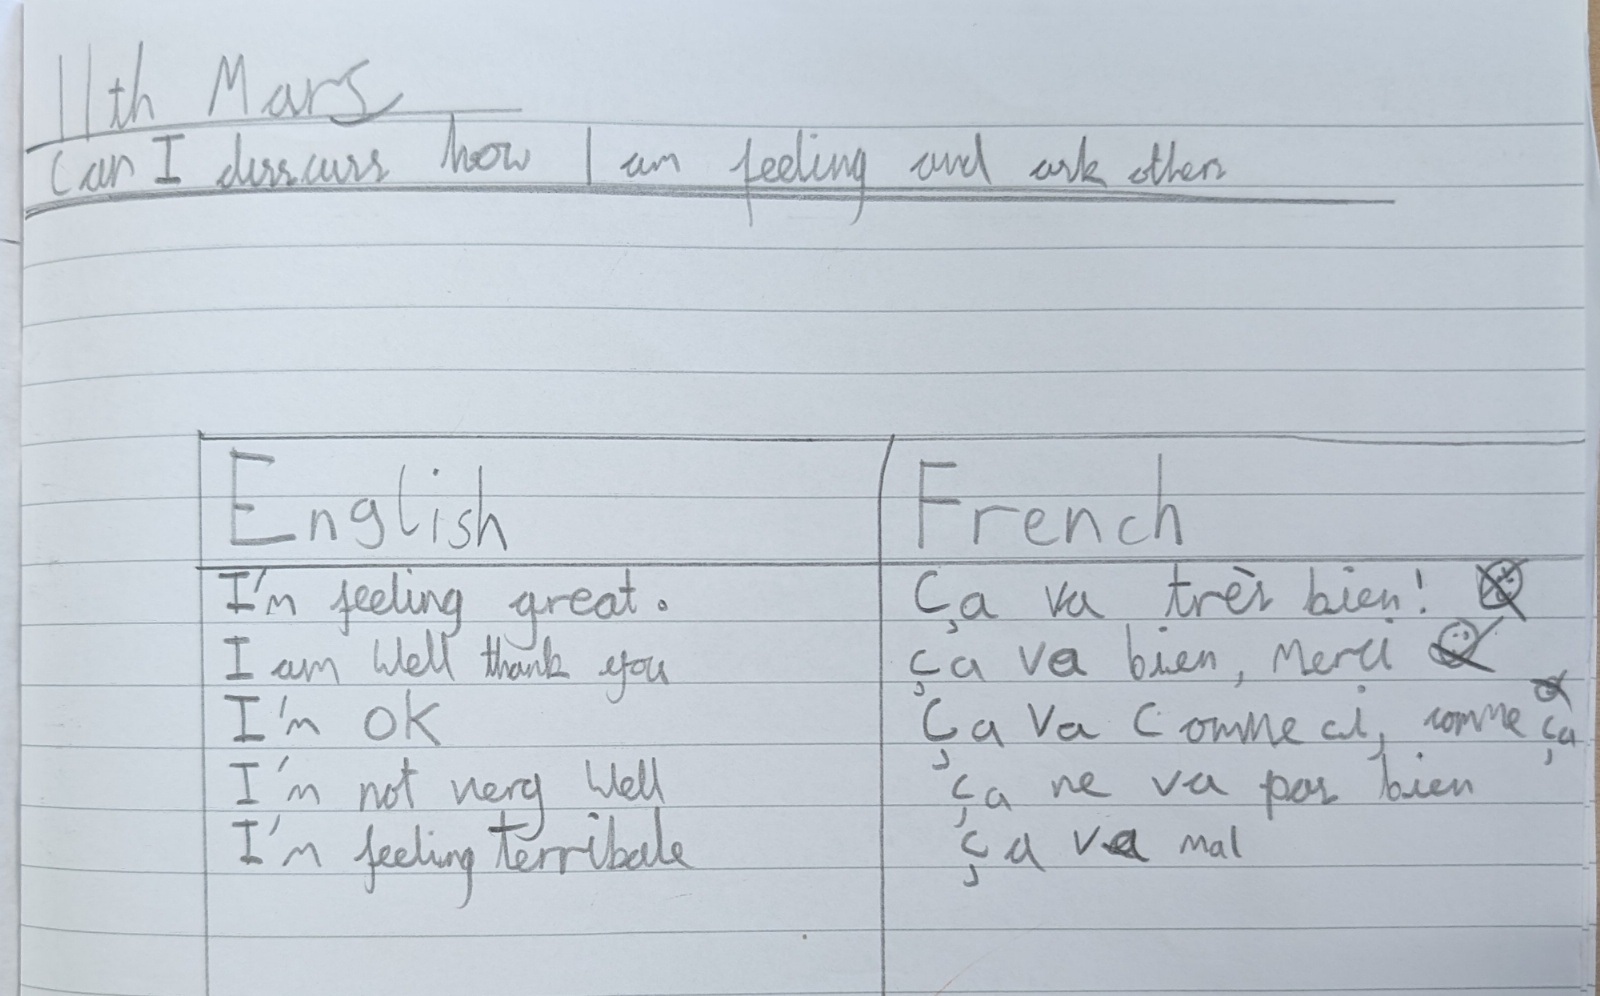 11th Mars
Can I disscuss how I am feeling and ask others
English French
I'm feeling great. Ça va très bien!
I am Well thank you ça va bien, Merci
I'm OK Ça Va Comme ci, comme ça
I'm not very Well ça ne va pas bien
I'm feeling terribale ça va mal